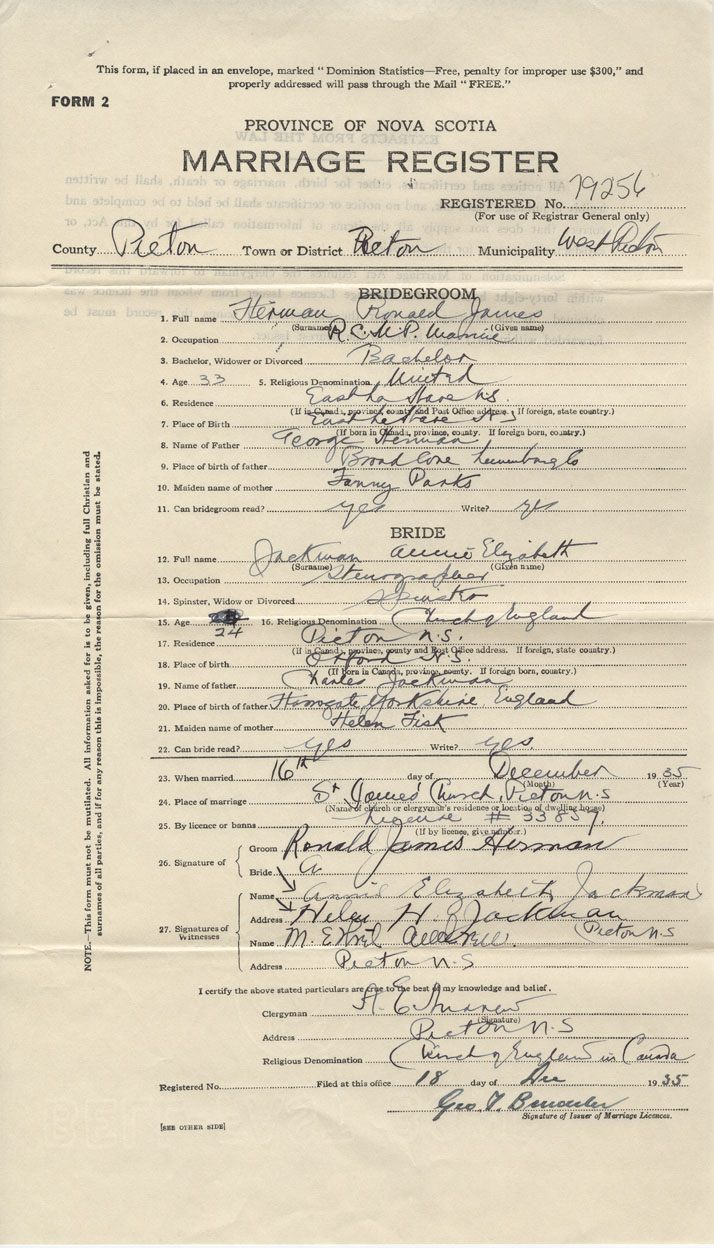 This form, if placed in an envelope, marked " Dominion Statistics—Free, penalty for improper use $300," and
properly addressed will pass through the Mail " FREE."
FORM 2
PROVINCE OF NOVA SCOTIA
MARRIAGE REGISTER
REGISTERED No. 79256
(For use of Registrar General only)
County Pictou Town or District Pictou Municipality West Pictou
BRIDEGROOM
1. Full name Herman Ronald James
(Surname) (Given name)
2. Occupation R.C.M.P. Marine
3. Bachelor, Widower or Divorced Bachelor
4. Age 33 5. Religious Denomination United
6. Residence East La Have N.S.
(If in Canada, province, county and Post Office address. If foreign, state country.)
7. Place of Birth East La Have N.S.
(If born in Canada, province, county. If foreign born, country.)
8. Name of Father George Herman
9. Place of birth of father Broad Cove Lunenburg Co
10. Maiden name of mother Fanny Parks
11. Can bridegroom read? yes Write? yes
BRIDE
12. Full name Jackman Annie Elizabeth
(Surname) (Given name)
13. Occupation Stenographer
14. Spinster, Widow or Divorced Spinster
15. Age 24 16. Religious Denomination Church of England
17. Residence Pictou N.S.
(If in Canada, province, county and Post Office address. If foreign, state country.)
18. Place of birth Oxford N.S.
(If born in Canada, province, county. If foreign born, country.)
19. Name of father Charles Jackman
20. Place of birth of father Harrogate Yorkshire, England
21. Maiden name of mother Helen Fisk
22. Can bride read? yes Write? yes.
23. When married 16th day of December 1935
(Month) (Year)
24. Place of marriage St James' Church, Pictou N.S
(Name of church or clergyman's residence or location of dwelling house)
25. By licence or banns License # 33857.
(If by licence, give number.)
26. Signature of Groom Ronald James Herman
Bride A.
Annie Elizabeth Jackman
27. Signatures of Witnesses
Name
Address Helen H. Jackman
Pictou N.S
Name M. E.
Address Pictou N.S
I certify the above stated particulars are true to the best of my knowledge and belief.
Clergyman A. E. Andrew
(Signature)
Address Pictou N.S
Religious Denomination Church of England in Canada
Registered No. Filed at this office 18 day of Dec 1935
Geo. T.
Signature of Issuer of Marriage Licences.
[SEE OTHER SIDE]
NOTE.—This form must not be mutilated. All information asked for is to be given, including full Christian and
surnames of all parties, and if for any reason this is impossible, the reason for the omission must be stated.